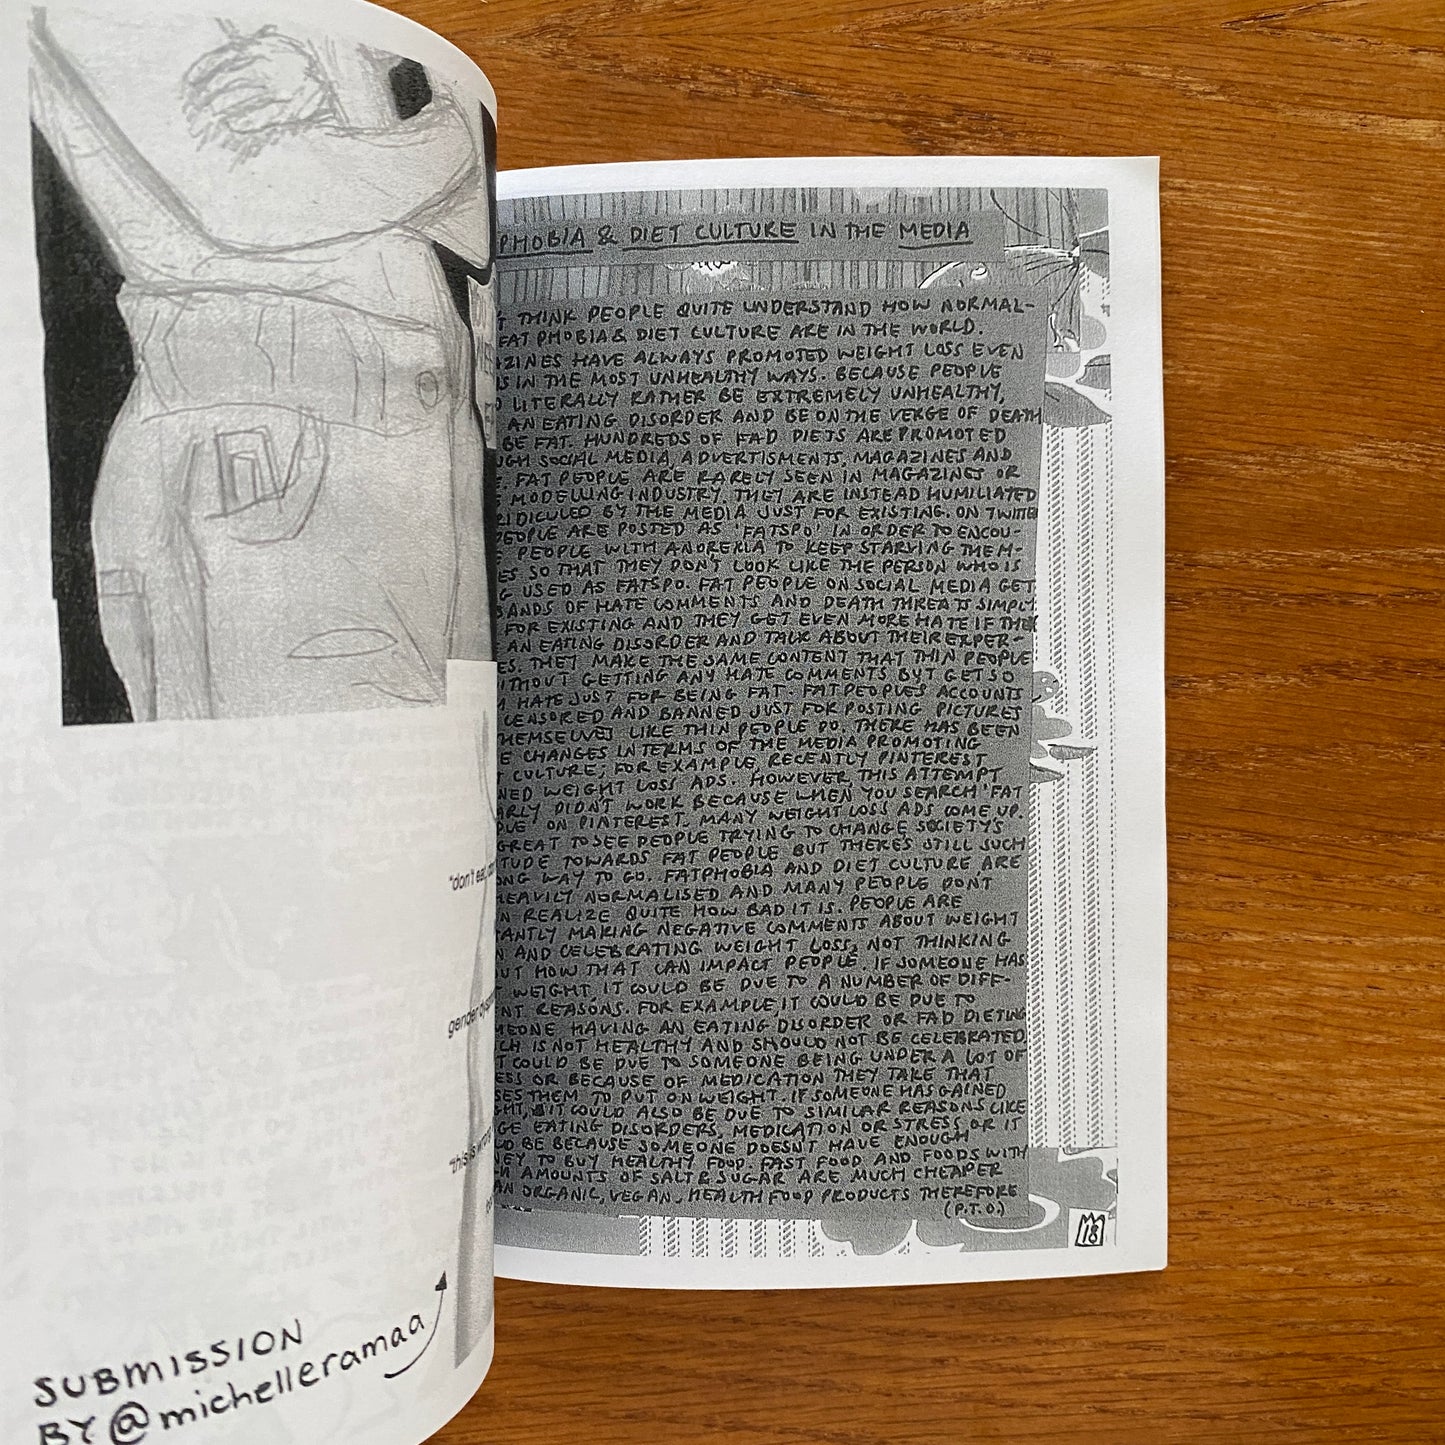 "don't eat
gender
"this is wrong
SUBMISSION
BY @michelleramaa
PHOBIA & DIET CULTURE IN THE MEDIA
THINK PEOPLE QUITE UNDERSTAND HOW NORMAL-
FATPHOBIA & DIET CULTURE ARE IN THE WORLD.
ZINES HAVE ALWAYS PROMOTED WEIGHT LOSS EVEN
IS IN THE MOST UNHEALTHY WAYS. BECAUSE PEOPLE
LITERALLY RATHER BE EXTREMELY UNHEALTHY,
AN EATING DISORDER AND BE ON THE VERGE OF DEATH
BE FAT. HUNDREDS OF FAD DIETS ARE PROMOTED
UGH SOCIAL MEDIA, ADVERTISMENTS, MAGAZINES AND
FAT PEOPLE ARE RARELY SEEN IN MAGAZINES OR
MODELLING INDUSTRY. THEY ARE INSTEAD HUMILIATED
RIDICULED BY THE MEDIA JUST FOR EXISTING. ON TWITTER
PEOPLE ARE POSTED AS 'FATSPO' IN ORDER TO ENCOU-
PEOPLE WITH ANOREXIA TO KEEP STARVING THEM-
ES SO THAT THEY DON'T LOOK LIKE THE PERSON WHO IS
G USED AS FATSPO. FAT PEOPLE ON SOCIAL MEDIA GET
SANDS OF HATE COMMENTS AND DEATH THREATS SIMPLY
FOR EXISTING AND THEY GET EVEN MORE HATE IF THEY
AN EATING DISORDER AND TALK ABOUT THEIR EXPER-
ES. THEY MAKE THE SAME CONTENT THAT THIN PEOPLE
ITHOUT GETTING ANY HATE COMMENTS BUT GET SO
HATE JUST FOR BEING FAT. FAT PEOPLE'S ACCOUNTS
CENSORED AND BANNED JUST FOR POSTING PICTURES
HEMSELVES LIKE THIN PEOPLE DO. THERE HAS BEEN
E CHANGES IN TERMS OF THE MEDIA PROMOTING
T CULTURE, FOR EXAMPLE, RECENTLY PINTEREST
NED WEIGHT LOSS ADS. HOWEVER THIS ATTEMPT
ARLY DIDN'T WORK BECAUSE WHEN YOU SEARCH 'FAT
PLE' ON PINTEREST. MANY WEIGHT LOSS ADS COME UP.
GREAT TO SEE PEOPLE TRYING TO CHANGE SOCIETY'S
TUDE TOWARDS FAT PEOPLE BUT THERE'S STILL SUCH
ONG WAY TO GO. FATPHOBIA AND DIET CULTURE ARE
HEAVILY NORMALISED AND MANY PEOPLE DON'T
N REALIZE QUITE HOW BAD IT IS. PEOPLE ARE
TANTLY MAKING NEGATIVE COMMENTS ABOUT WEIGHT
N AND CELEBRATING WEIGHT LOSS, NOT THINKING
OUT HOW THAT CAN IMPACT PEOPLE. IF SOMEONE HAS
WEIGHT IT COULD BE DUE TO A NUMBER OF DIFF-
NT REASONS. FOR EXAMPLE, IT COULD BE DUE TO
MEONE HAVING AN EATING DISORDER OR FAD DIETING
CH IS NOT HEALTHY AND SHOULD NOT BE CELEBRATED.
T COULD BE DUE TO SOMEONE BEING UNDER A LOT OF
ESS OR BECAUSE OF MEDICATION THEY TAKE THAT
SES THEM TO PUT ON WEIGHT. IF SOMEONE HAS GAINED
GHT, IT COULD ALSO BE DUE TO SIMILAR REASONS LIKE
GE EATING DISORDERS, MEDICATION OR STRESS OR IT
LD BE BECAUSE SOMEONE DOESN'T HAVE ENOUGH
EY TO BUY HEALTHY FOOD. FAST FOOD AND FOODS WITH
AMOUNTS OF SALT & SUGAR ARE MUCH CHEAPER
AN ORGANIC, VEGAN, HEALTH FOOD PRODUCTS THEREFORE
(P.T.O.)
18